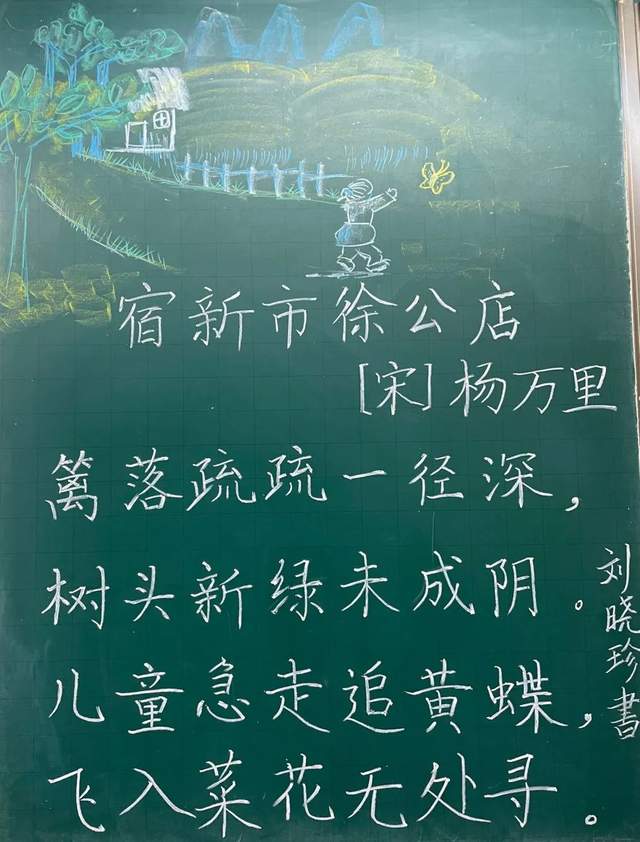 宿新市徐公店
[宋]杨万里
篱落疏疏一径深，
树头新绿未成阴。
儿童急走追黄蝶，
飞入菜花无处寻。
刘晓珍書